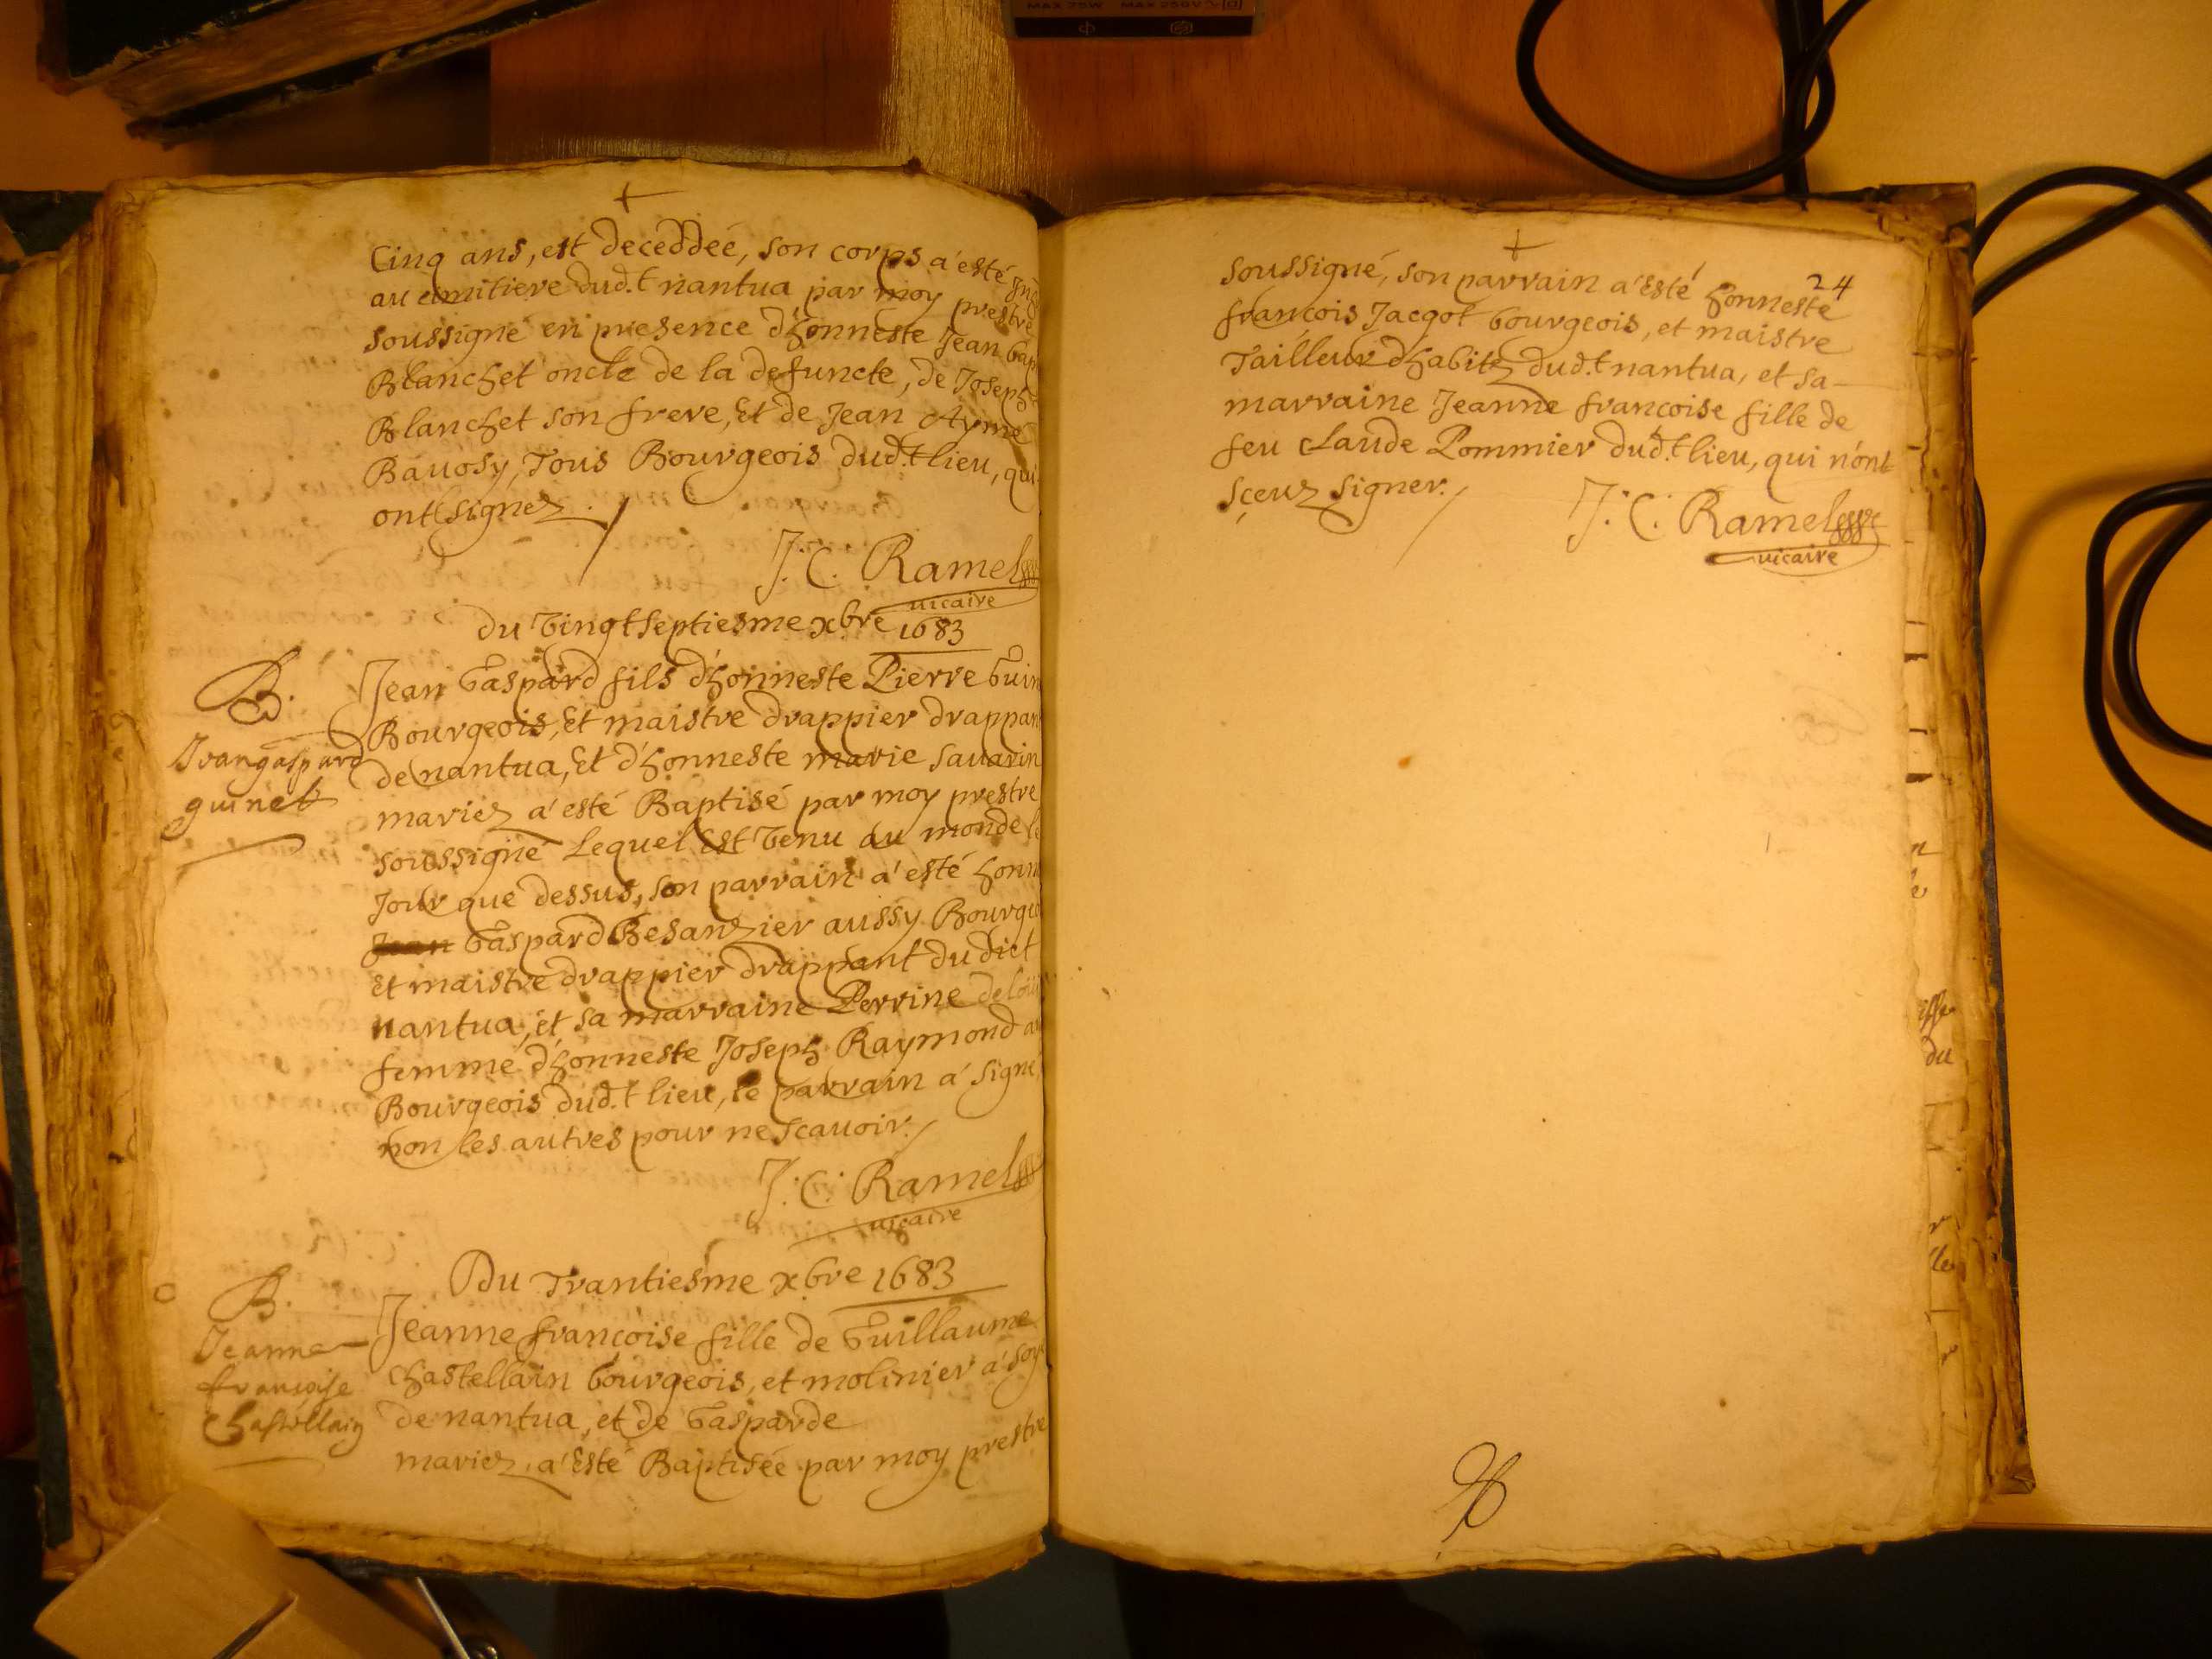 MAX 75W MAX 250V
+
Cinq ans, est deceddée, son corps a'esté
au cimitiere dud.t nantua par moy prestre
soussigné en presence d'honneste Jean bap
Blanchet oncle de la defuncte, de Joseph
Blanchet son frere, Et de Jean Aymé
Bauosy, Tous Bourgeois dud.t lieu, qui
ont signez.
J. C. Ramel
vicaire
Du Vingt septiesme xbre 1683
B.
Jeangaspard
guinet
Jean Gaspard fils d'honneste Pierre Guin
Bourgeois, Et maistre drappier drappan
de nantua, Et d'honneste marie savarin
mariez a'esté Baptisé par moy prestre
soussigné Lequel Est Venu au monde le
Jour que dessus, son parrain a'esté honn
Jean Gaspard Besanzier aussy Bourgeo
Et maistre drappier drappant dudict
nantua, et sa marraine Perrine
femme d'honneste Joseph Raymond au
Bourgeois dud.t lieu, le parrain a' signé,
non les autres pour ne scavoir.
J. C. Ramel
vicaire
Du Trantiesme xbre 1683
B.
Jeanne
francoise
Chastellain
Jeanne francoise fille de Guillaume
chastellain bourgeois, et molinier a' soye
de nantua, et de Gasparde
mariez, a'Esté Baptisée par moy prestre
+
24
soussigné, son parrain a'Esté honneste
francois Jacqot bourgeois, et maistre
Tailleur d'habitz dud.t nantua, et sa
marraine Jeanne francoise fille de
feu Claude Pommier dud.t lieu, qui n'ont
sçeuz signer.
J. C. Ramel
vicaire
du